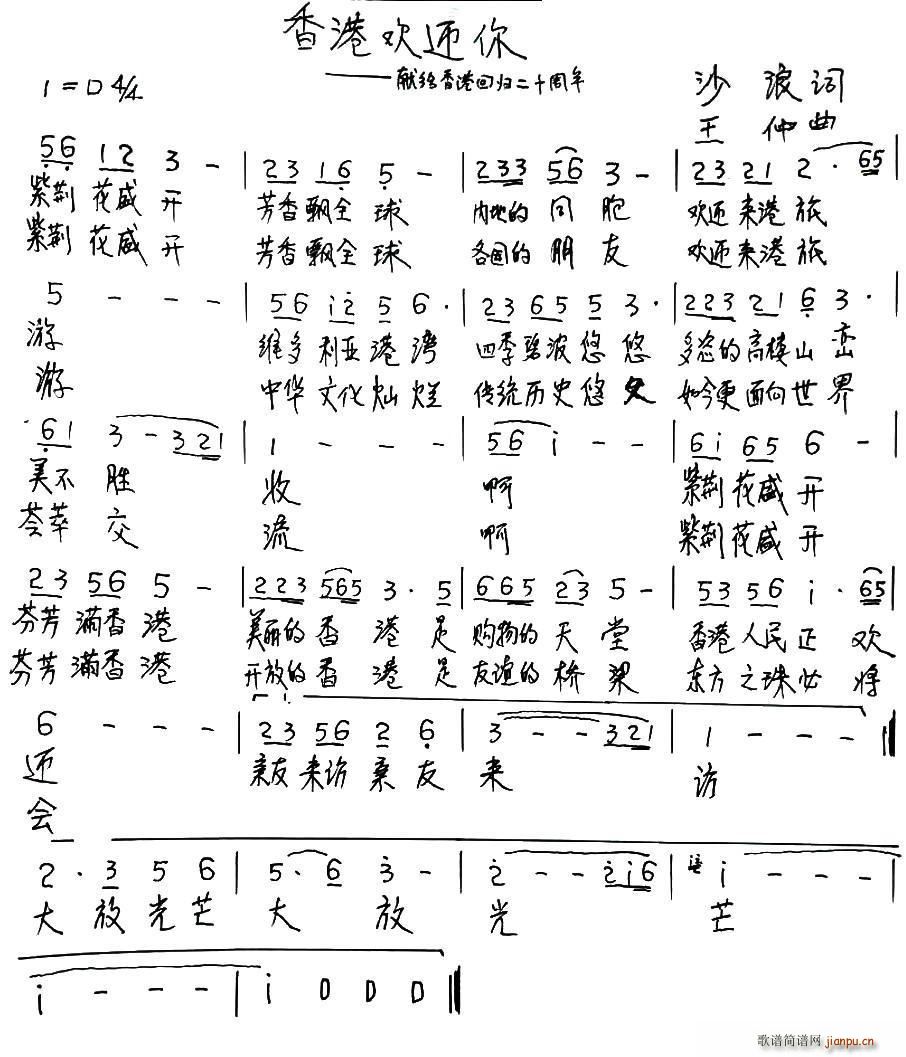 香港欢迎你
——献给香港回归二十周年
1=D 4/4
沙浪词
王仲曲
56 12 3 - | 23 16 5 - | 233 56 3 - | 23 21 2 · 65
紫荆 花盛 开 芳香飘全 球 内地的 同 胞 欢迎 来港 旅
紫荆 花盛 开 芳香飘全 球 各国的 朋 友 欢迎 来港 旅
5 - - - | 56 i2 5 6· | 23 65 5 3· | 223 21 6 3·
游 维多 利亚 港 湾 四季 碧波 悠 悠 多姿的 高楼 山 峦
游 中华 文化 灿 烂 传统 历史 悠 久 如今更 面向 世 界
61 3 - 321 | 1 - - - | 56 i - - | 6i 65 6 -
美不 胜 收 啊 紫荆 花盛 开
荟萃 交 流 啊 紫荆 花盛 开
23 56 5 - | 223 565 3· 5 | 665 23 5 - | 53 56 i · 65
芬芳 满香 港 美丽的 香 港 是 购物的 天 堂 香港 人民 正 欢
芬芳 满香 港 开放的 香 港 是 友谊的 桥 梁 东方 之珠 必 将
1.
6 - - - | 23 56 2 6 | 3 - - 321 | 1 - - -
迎 亲友 来访 亲 友 来 访
会
2 · 3 5 6 | 5 · 6 3 - | 2 - - 2i6 | i - - -
大 放 光 芒 大 放 光 芒
i - - - | i 0 0 0
歌谱简谱网
jianpu.cn